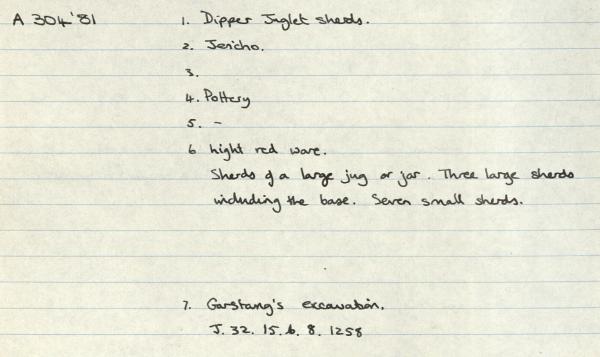 A 304'81 1. Dipper Juglet sherds.
2. Jericho.
3.
4. Pottery
5. -
6 Light red ware.
Sherds of a large jug or jar. Three large sherds
including the base. Seven small sherds.
7. Garstang's excavation.
J. 32. 15. 6. 8. 1258